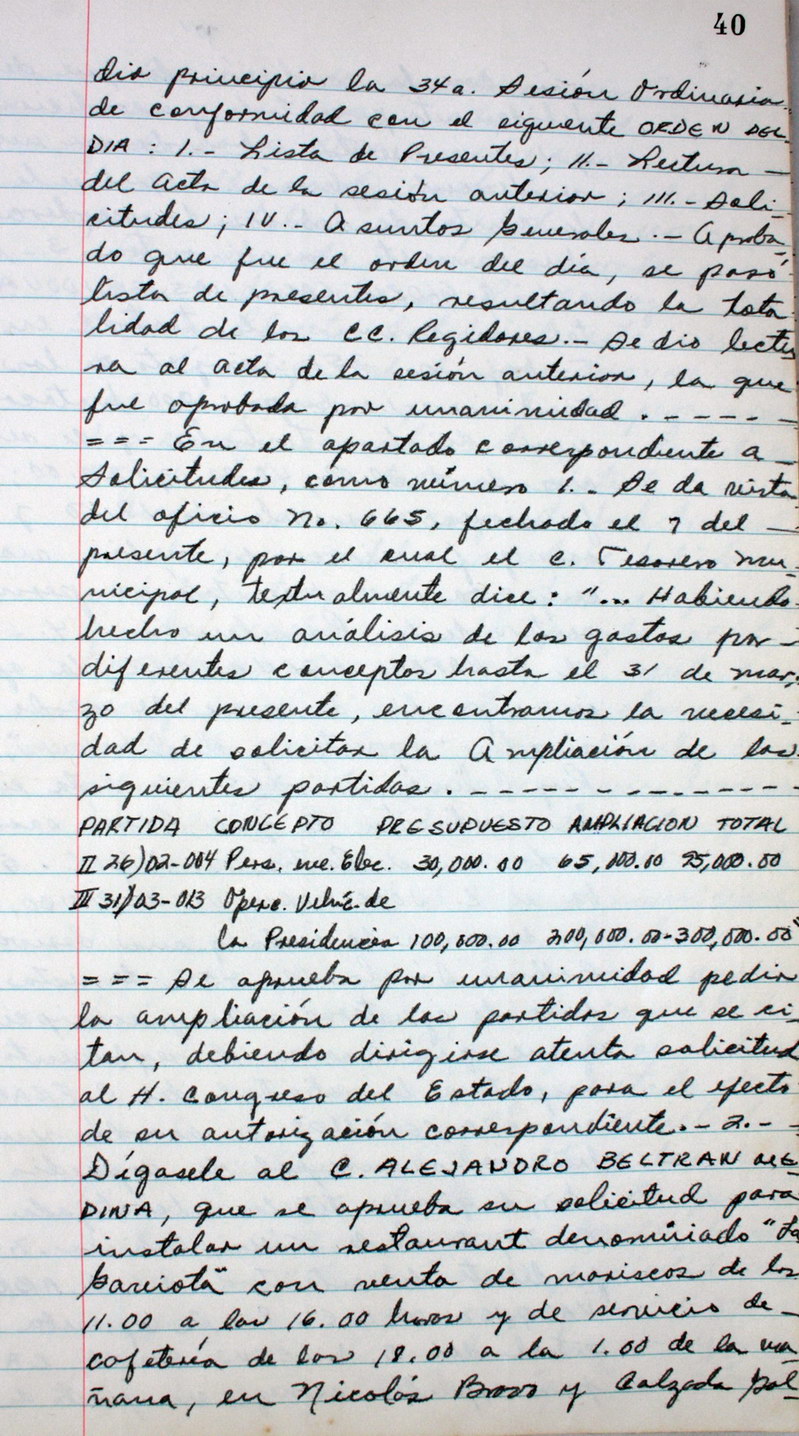 40
dio principio la 34a. Sesión Ordinaria
de conformidad con el siguiente ORDEN DEL
DIA : I.- Lista de Presentes; II.- Lectura -
del Acta de la sesión anterior; III.- Soli-
citudes; IV.- Asuntos Generales.- Aproba-
do que fue el orden del día, se pasó
lista de presentes, resultando la tota-
lidad de los CC. Regidores.- Se dio lectu-
ra al acta de la sesión anterior, la que
fue aprobada por unanimidad . - - - - -
= = = En el apartado correspondiente a -
Solicitudes, como número 1.- Se da vista
del oficio No. 665, fechado el 7 del -
presente, por el cual el C. Tesorero Mu-
nicipal, textualmente dice: "... Habiendo
hecho un análisis de los gastos por -
diferentes conceptos hasta el 31 de mar-
zo del presente, encontramos la necesi-
dad de solicitar la Ampliación de las
siguientes partidas . - - - - - - - - - - - - -
PARTIDA CONCEPTO PRESUPUESTO AMPLIACION TOTAL
II 26)02-004 Pers. Elec. 30,000.00 65,000.00 95,000.00
III 31)03-013 Operc. Vehíc. de
la Presidencia 100,000.00 200,000.00-300,000.00"
= = = Se aprueba por unanimidad pedir
la ampliación de las partidas que se ci-
tan, debiendo dirigirse atenta solicitud
al H. Congreso del Estado, para el efecto
de su autorización correspondiente.- 2.- -
Dígasele al C. ALEJANDRO BELTRAN ME-
DINA, que se aprueba su solicitud para
instalar un restaurant denominado "La
Gaviota" con venta de mariscos de las
11.00 a las 16.00 horas y de servicio de -
cafetería de las 18.00 a la 1.00 de la ma-
ñana, en Nicolás Bravo y Calzada Gal-